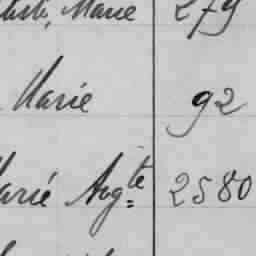 Marie 279
Marie 92
Marié Aug^te 2580